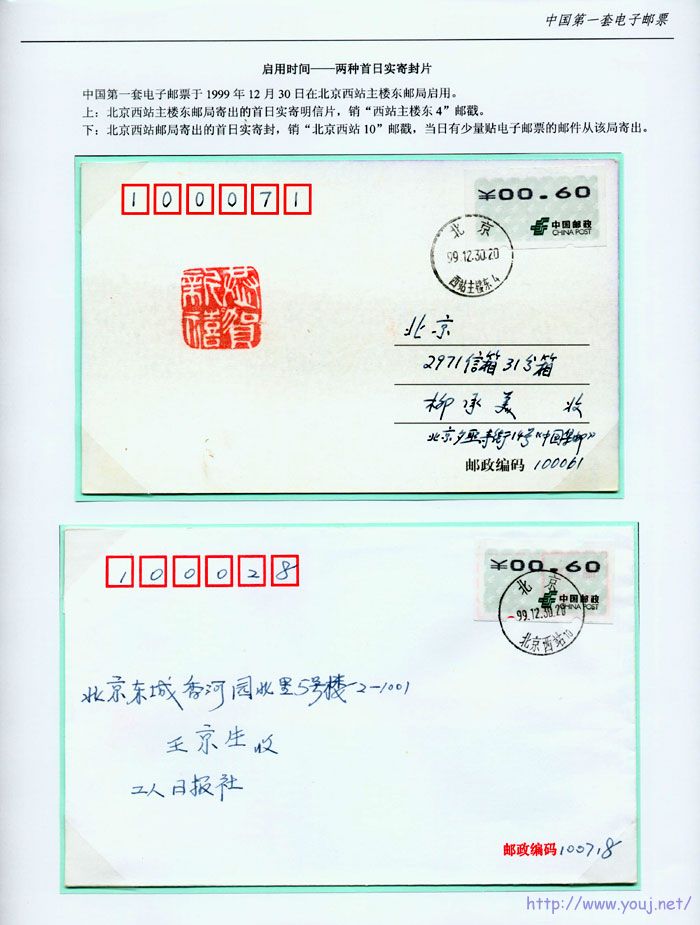 中国第一套电子邮票
启用时间——两种首日实寄封片
中国第一套电子邮票于 1999 年 12 月 30 日在北京西站主楼东邮局启用。
上：北京西站主楼东邮局寄出的首日实寄明信片，销“西站主楼东 4”邮戳。
下：北京西站邮局寄出的首日实寄封，销“北京西站 10”邮戳，当日有少量贴电子邮票的邮件从该局寄出。
100071
¥00.60
中国邮政
CHINA POST
北京
99.12.30.20
西站主楼东4
恭贺新禧
北京
2971信箱31分箱
柳承美 收
北京 寺街14号《中国集邮》
邮政编码 100061
100028
¥00.60
中国邮政
CHINA POST
北京
99.12.30.20
北京西站10
北京东城香河园北里5号楼-2-1001
王京生收
工人日报社
邮政编码100718
http://www.youj.net/